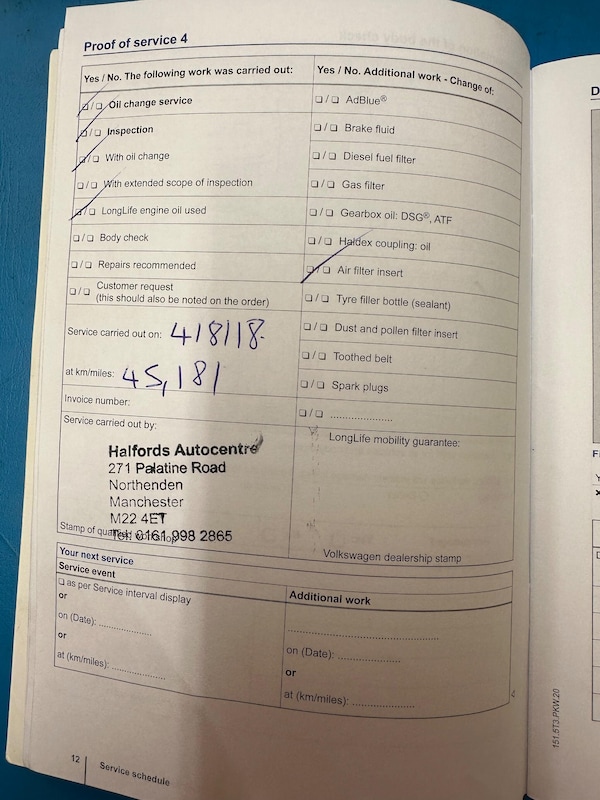 Proof of service 4
Yes / No. The following work was carried out:
❑/❑ Oil change service
❑/❑ Inspection
❑/❑ With oil change
❑/❑ With extended scope of inspection
❑/❑ LongLife engine oil used
❑/❑ Body check
❑/❑ Repairs recommended
❑/❑ Customer request
(this should also be noted on the order)
Service carried out on: 4/8/18
at km/miles: 45,181
Invoice number:
Service carried out by:
Halfords Autocentre
271 Palatine Road
Northenden
Manchester
M22 4ET
Tel: 0161 998 2865
Stamp of qualified workshop
Yes / No. Additional work - Change of:
❑/❑ AdBlue®
❑/❑ Brake fluid
❑/❑ Diesel fuel filter
❑/❑ Gas filter
❑/❑ Gearbox oil: DSG®, ATF
❑/❑ Haldex coupling: oil
❑/❑ Air filter insert
❑/❑ Tyre filler bottle (sealant)
❑/❑ Dust and pollen filter insert
❑/❑ Toothed belt
❑/❑ Spark plugs
❑/❑ ....................
LongLife mobility guarantee:
Volkswagen dealership stamp
Your next service
Service event
❑ as per Service interval display
or
on (Date): .................
or
at (km/miles): .................
Additional work
.................................................
on (Date): ....................
or
at (km/miles): ....................
12
Service schedule
151.5T3.PKW.20